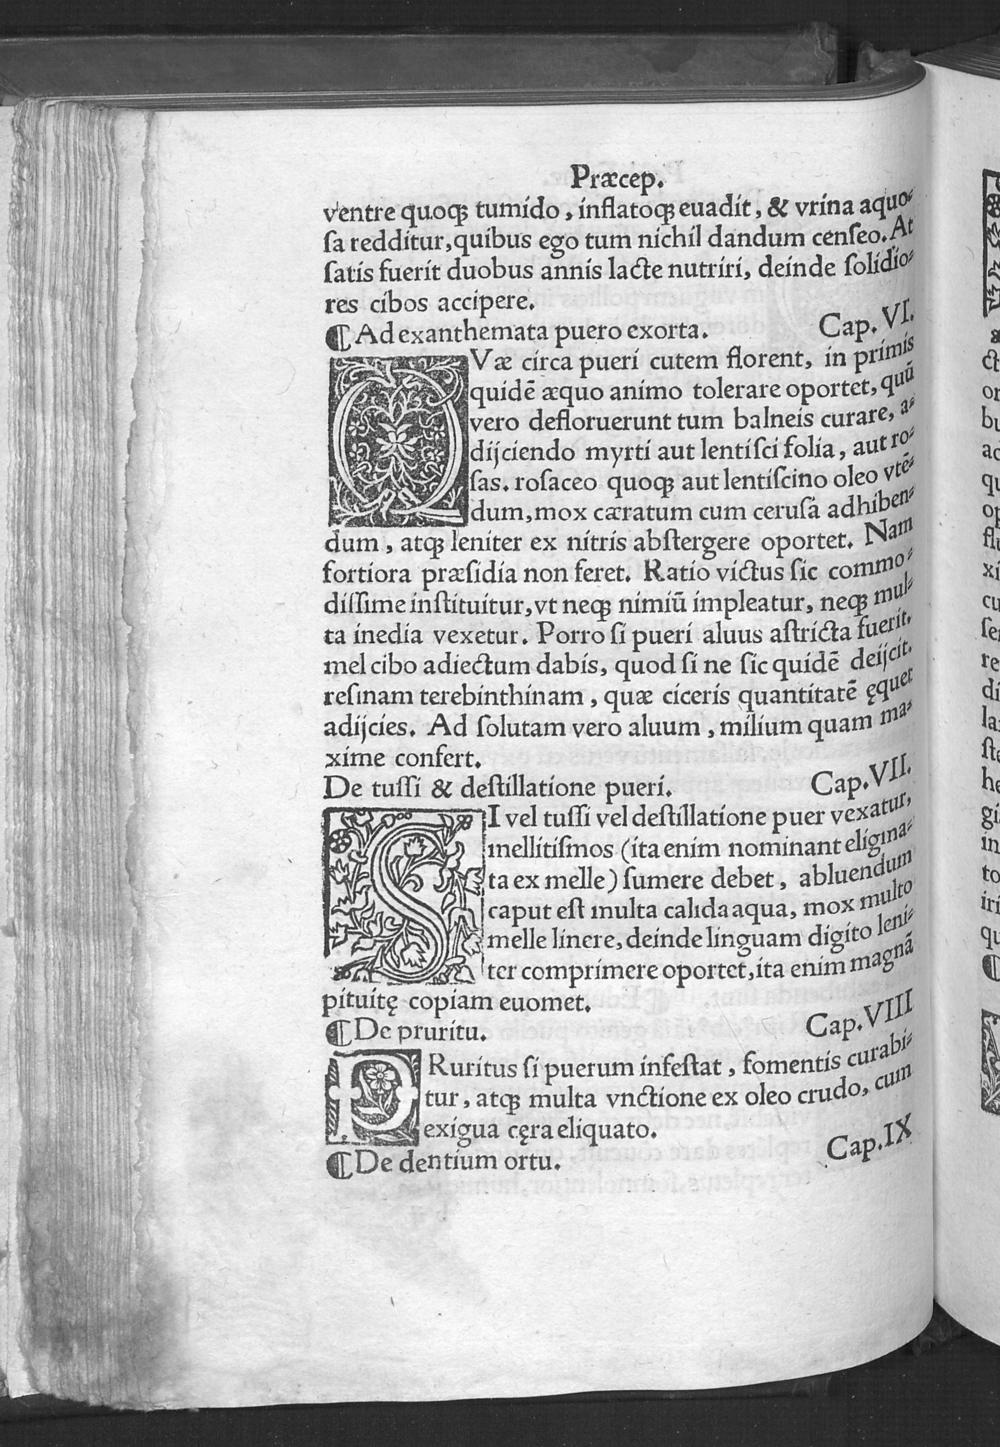 Præcep.
ventre quoqꝫ tumido, inflatoqꝫ euadit, & vrina aquo⸗
ſa redditur, quibus ego tum nichil dandum cenſeo. At
ſatis fuerit duobus annis lacte nutriri, deinde ſolidio⸗
res cibos accipere.
¶ Ad exanthemata puero exorta. Cap. VI.
QVæ circa pueri cutem florent, in primis
quidē æquo animo tolerare oportet, quū
vero defloruerunt tum balneis curare, a⸗
dijciendo myrti aut lentiſci folia, aut ro⸗
ſas. roſaceo quoqꝫ aut lentiſcino oleo vtē⸗
dum, mox cæratum cum ceruſā adhiben⸗
dum, atqꝫ leniter ex nitris abſtergere oportet. Nam
fortiora præſidia non feret. Ratio victus ſic commo⸗
diſſime inſtituitur, vt neqꝫ nimiū impleatur, neqꝫ mul⸗
ta inedia vexetur. Porro ſi pueri aluus aſtricta fuerit,
mel cibo adiectum dabis, quod ſi ne ſic quidē deijcit,
reſinam terebinthinam, quæ ciceris quantitatē ęquet
adijcies. Ad ſolutam vero aluum, milium quam ma⸗
xime confert.
De tuſſi & deſtillatione pueri. Cap. VII.
SI vel tuſſi vel deſtillatione puer vexatur,
mellitiſmos (ita enim nominant eligma⸗
ta ex melle) ſumere debet, abluendum
caput eſt multa calida aqua, mox multo
melle linere, deinde linguam digito leni⸗
ter comprimere oportet, ita enim magnā
pituitę copiam euomet.
¶ De pruritu. Cap. VIII
PRuritus ſi puerum infeſtat, fomentis curabi⸗
tur, atqꝫ multa vnctione ex oleo crudo, cum
exigua cęra eliquato.
¶ De dentium ortu. Cap. IX